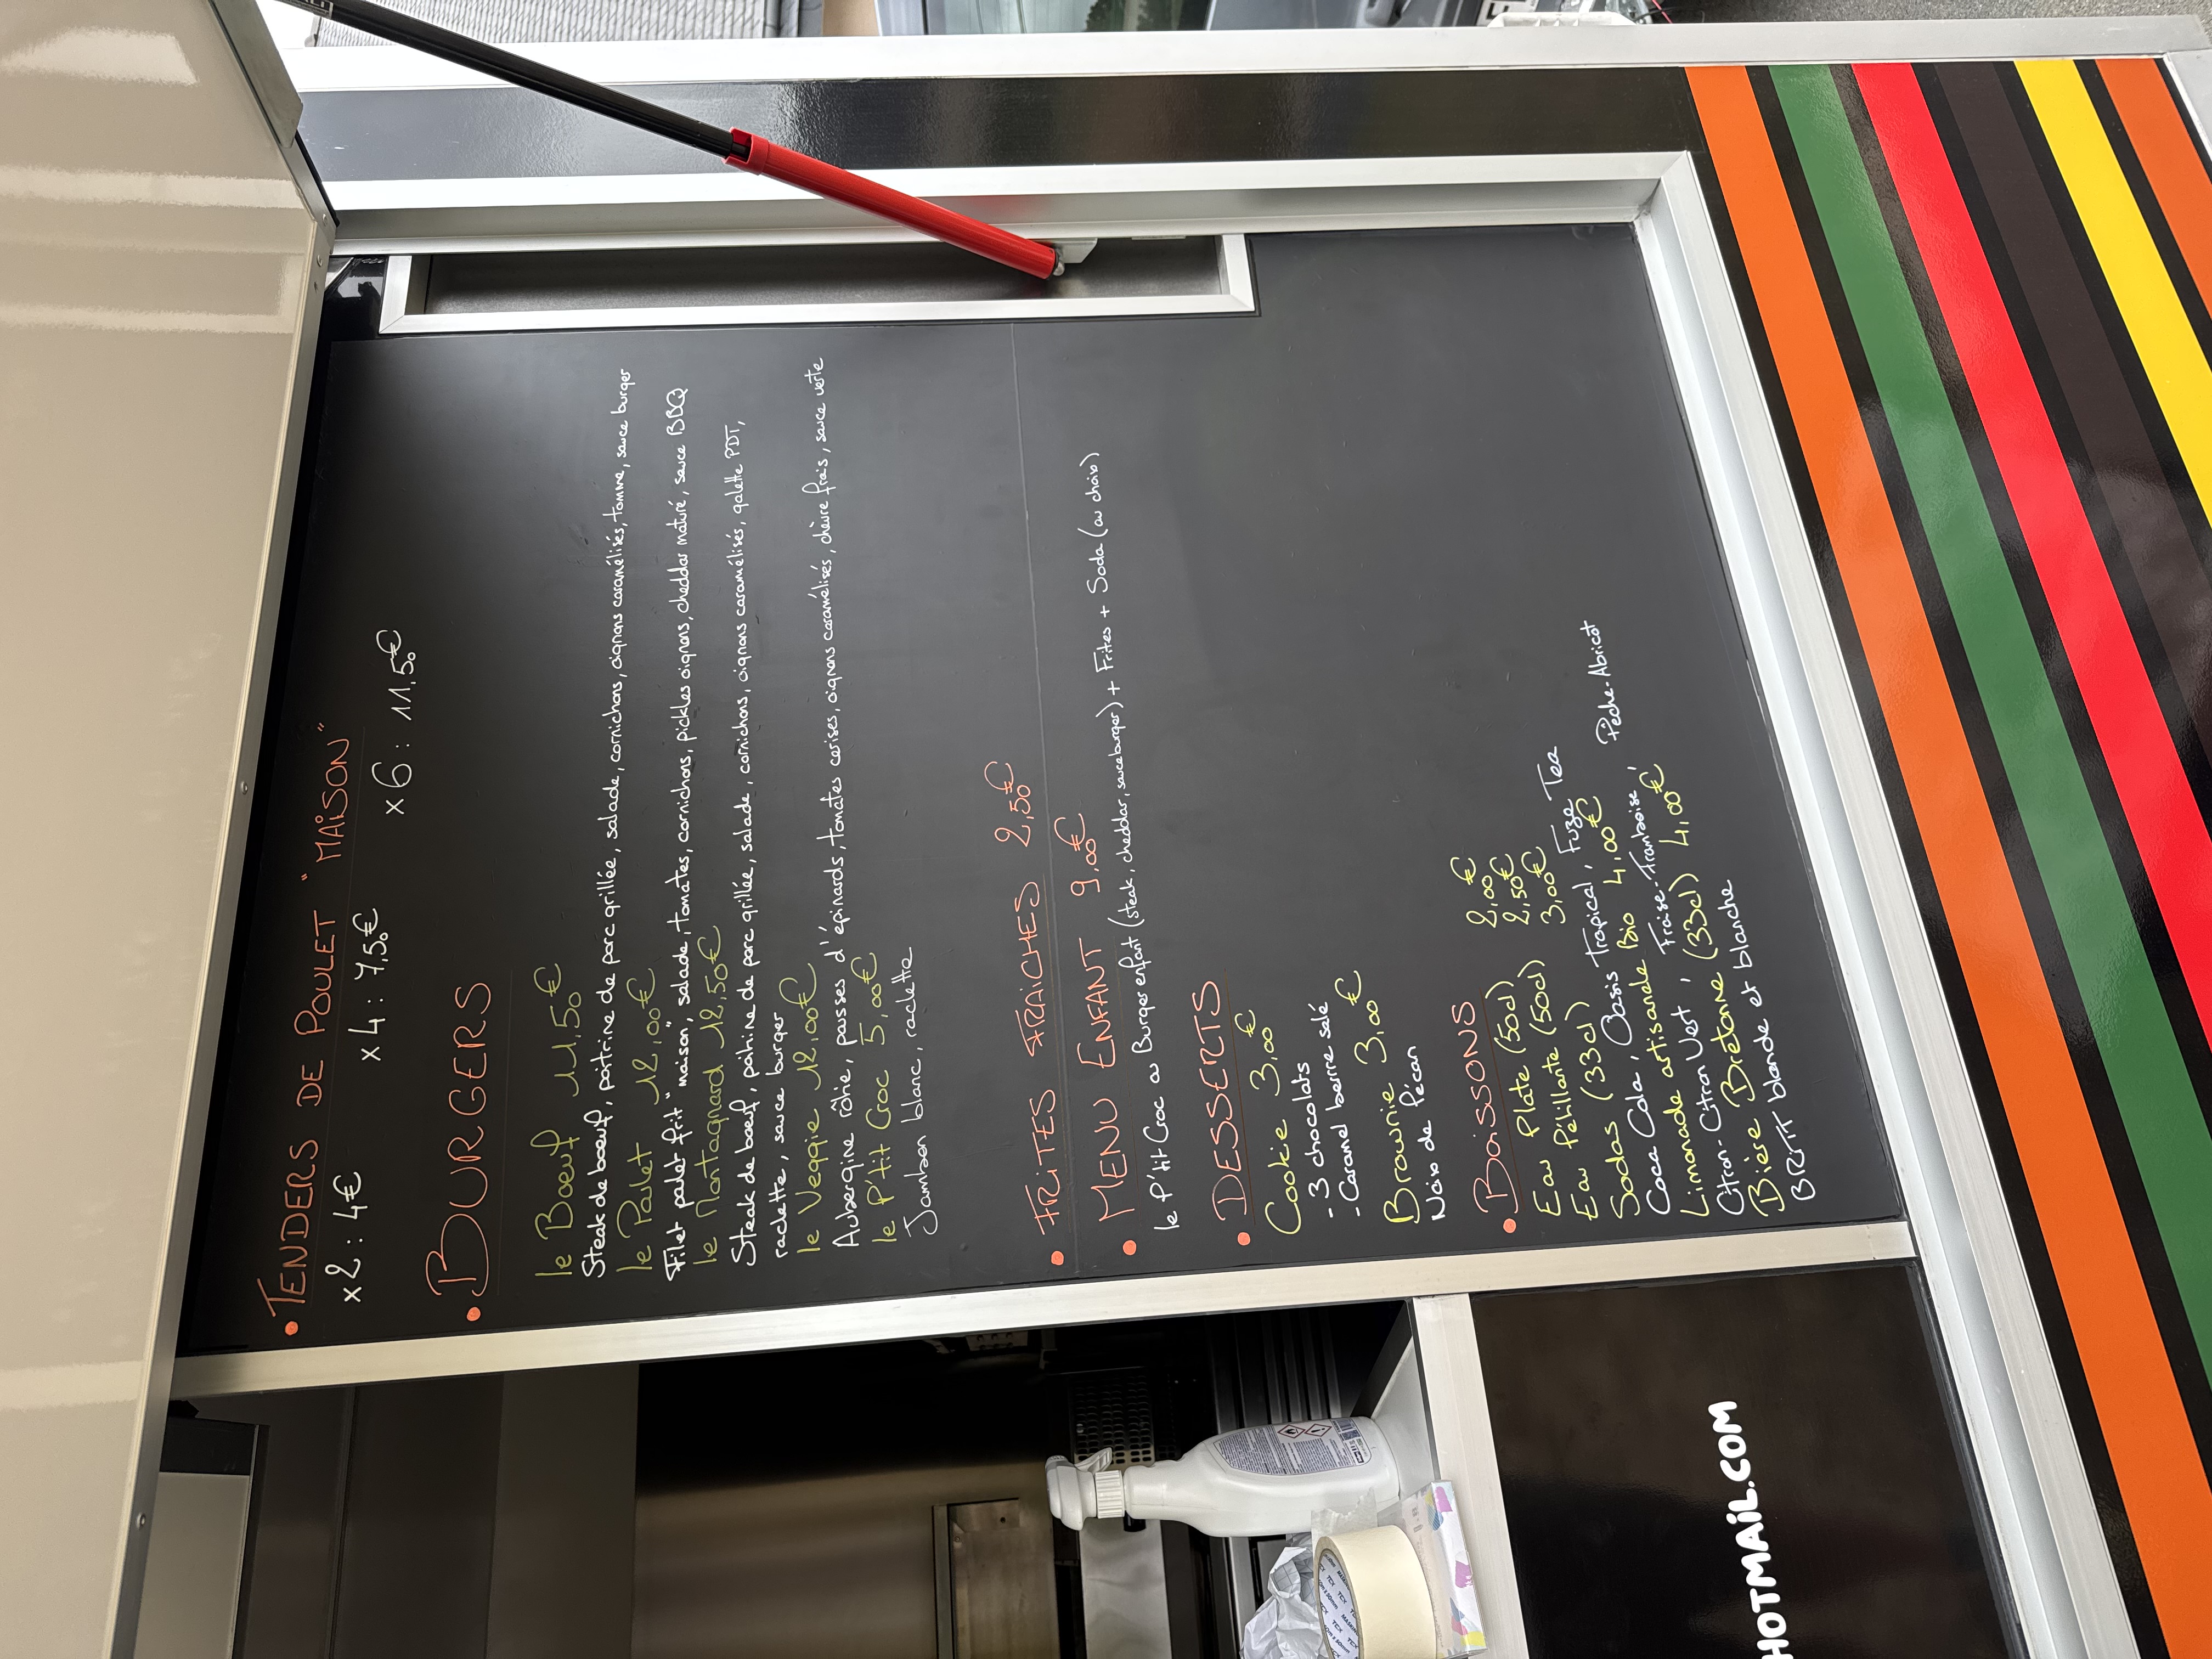 • TENDERS DE POULET "MAISON"
x2 : 4€ x4 : 7,50€ x6 : 11,50€
• BURGERS
le Boeuf 11,50€
Steak de boeuf, poitrine de porc grillée, salade, cornichons, oignons caramélisés, tomme, sauce burger
le Poulet 12,00€
Filet poulet frit "maison", salade, tomates, cornichons, pickles oignons, cheddar maturé, sauce BBQ
le Montagnard 12,50€
Steak de boeuf, poitrine de porc grillée, salade, cornichons, oignons caramélisés, galette PDT,
raclette, sauce burger
le Veggie 12,00€
Aubergine rôtie, pousses d'épinards, tomates cerises, oignons caramélisés, chèvre frais, sauce verte
le P'tit Croc 5,00€
Jambon blanc, raclette
• FRITES FRAICHES 2,50€
• MENU ENFANT 9,00€
le P'tit Croc ou Burger enfant (steak, cheddar, sauce burger) + Frites + Soda (au choix)
• DESSERTS
Cookie 3,00€
- 3 chocolats
- Caramel beurre salé
Brownie 3,00€
Noix de Pécan
• BOISSONS
Eau Plate (50cl) 2,00€
Eau Pétillante (50cl) 2,50€
Sodas (33cl) 3,00€
Coca Cola, Oasis Tropical, Fuze Tea
Limonade artisanale Bio 4,00€
Citron-Citron Vert, Fraise-Framboise, Pêche-Abricot
Bière Bretonne (33cl) 4,00€
BRITT blonde et blanche
HOTMAIL.COM
TCX